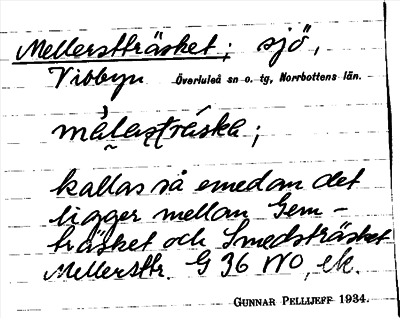 Mellersträsket; sjö,
Vibbyn Överluleå sn o. tg, Norrbottens län.
kallas så emedan det
ligger mellan Gem-
träsket och Smedsträsket
Mellerstr. G 36 NO, ek.
GUNNAR PELLIJEFF 1934.